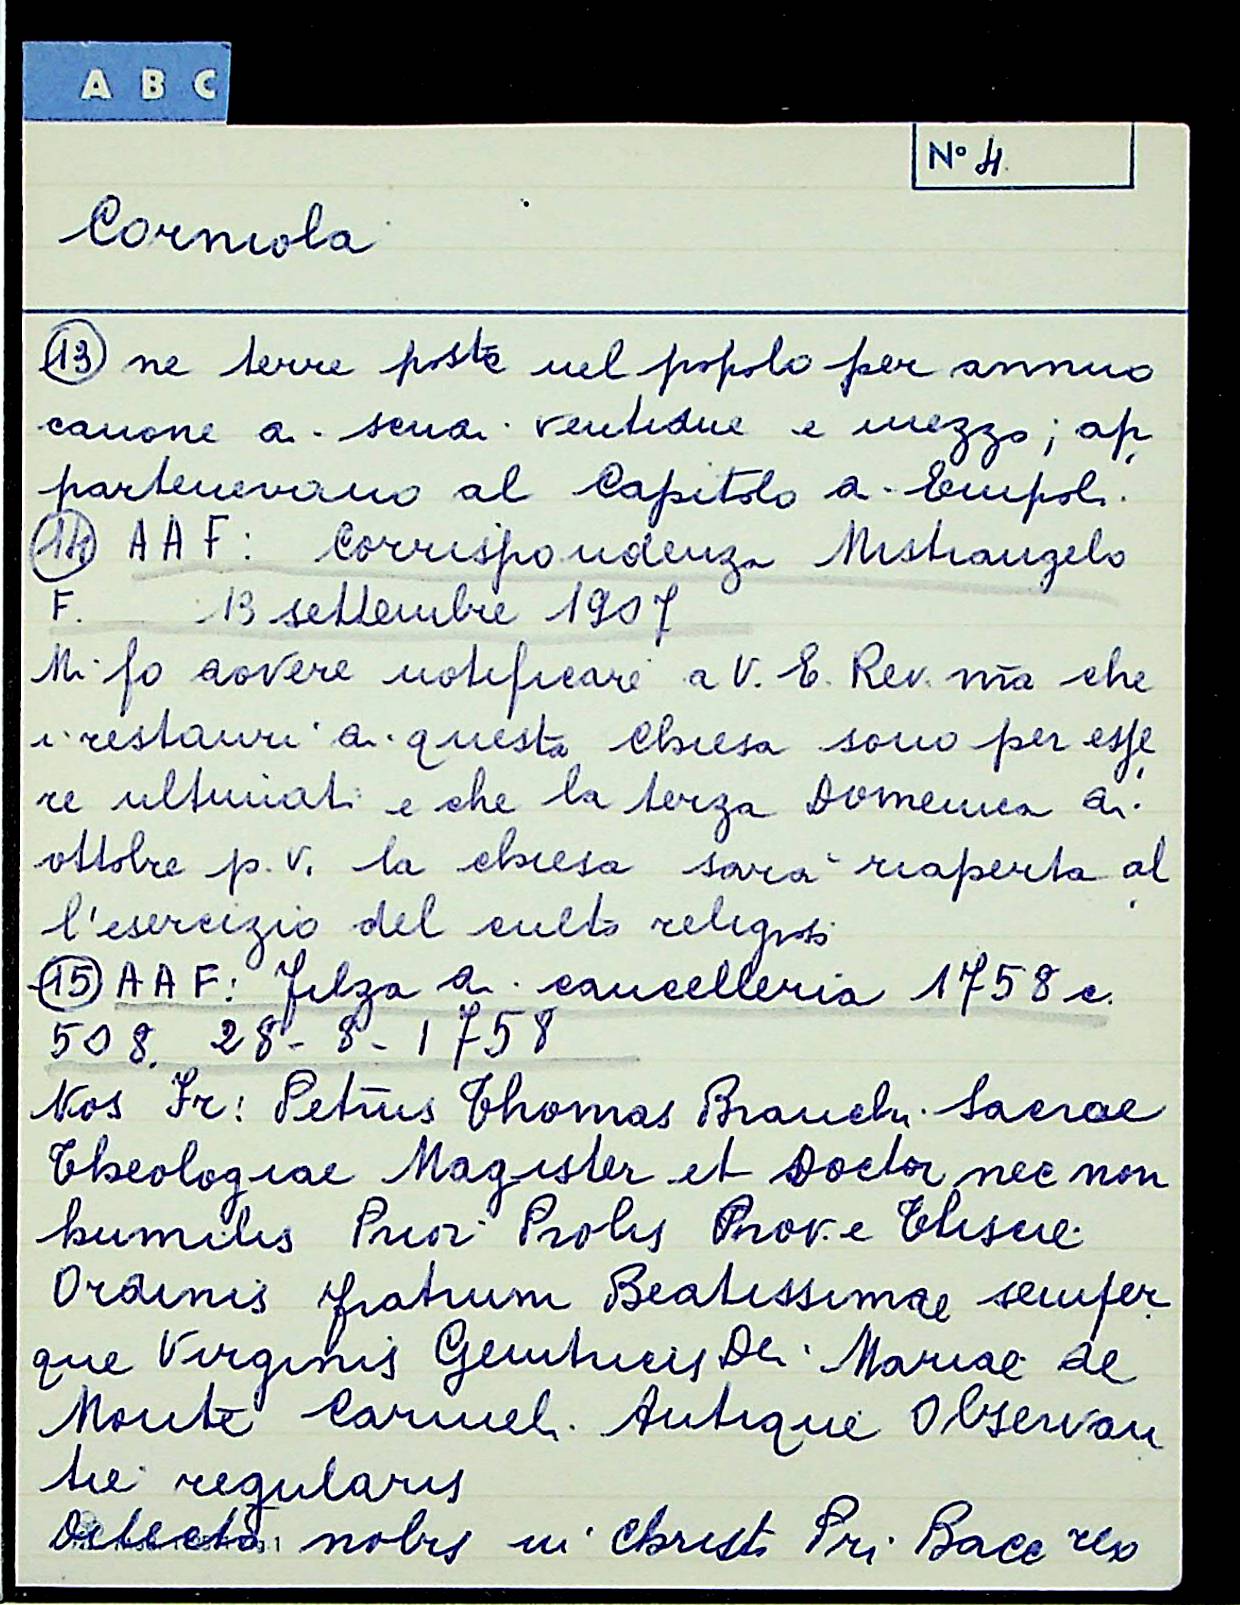 A B C
N° 4
Corniola
13 ne terre poste nel popolo per annuo
canone di scudi ventidue e mezzo; ap
partenevano al Capitolo di Empoli.
14 AAF: Corrispondenza Mistrangelo
F. 13 settembre 1907
Mi fo dovere notificare a V. E. Rev. ma che
i restauri di questa Chiesa sono per esse
re ultimati e che la terza Domenica di
ottobre p. v. la chiesa sarà riaperta al
l'esercizio del culto religioso
15 AAF: Filza di cancelleria 1758 c.
508. 28-8-1758
Nos Fr: Petrus Thomas Bianchi Sacrae
Theologiae Magister et Doctor nec non
humilis Prior Prolis Prov.e Thuscie
Ordinis fratrum Beatissimae semper
que Virginis Genitricis Dei Mariae de
Monte Carmeli Antique Observan
tie regularis
nobis in Christo Pri. Bacc